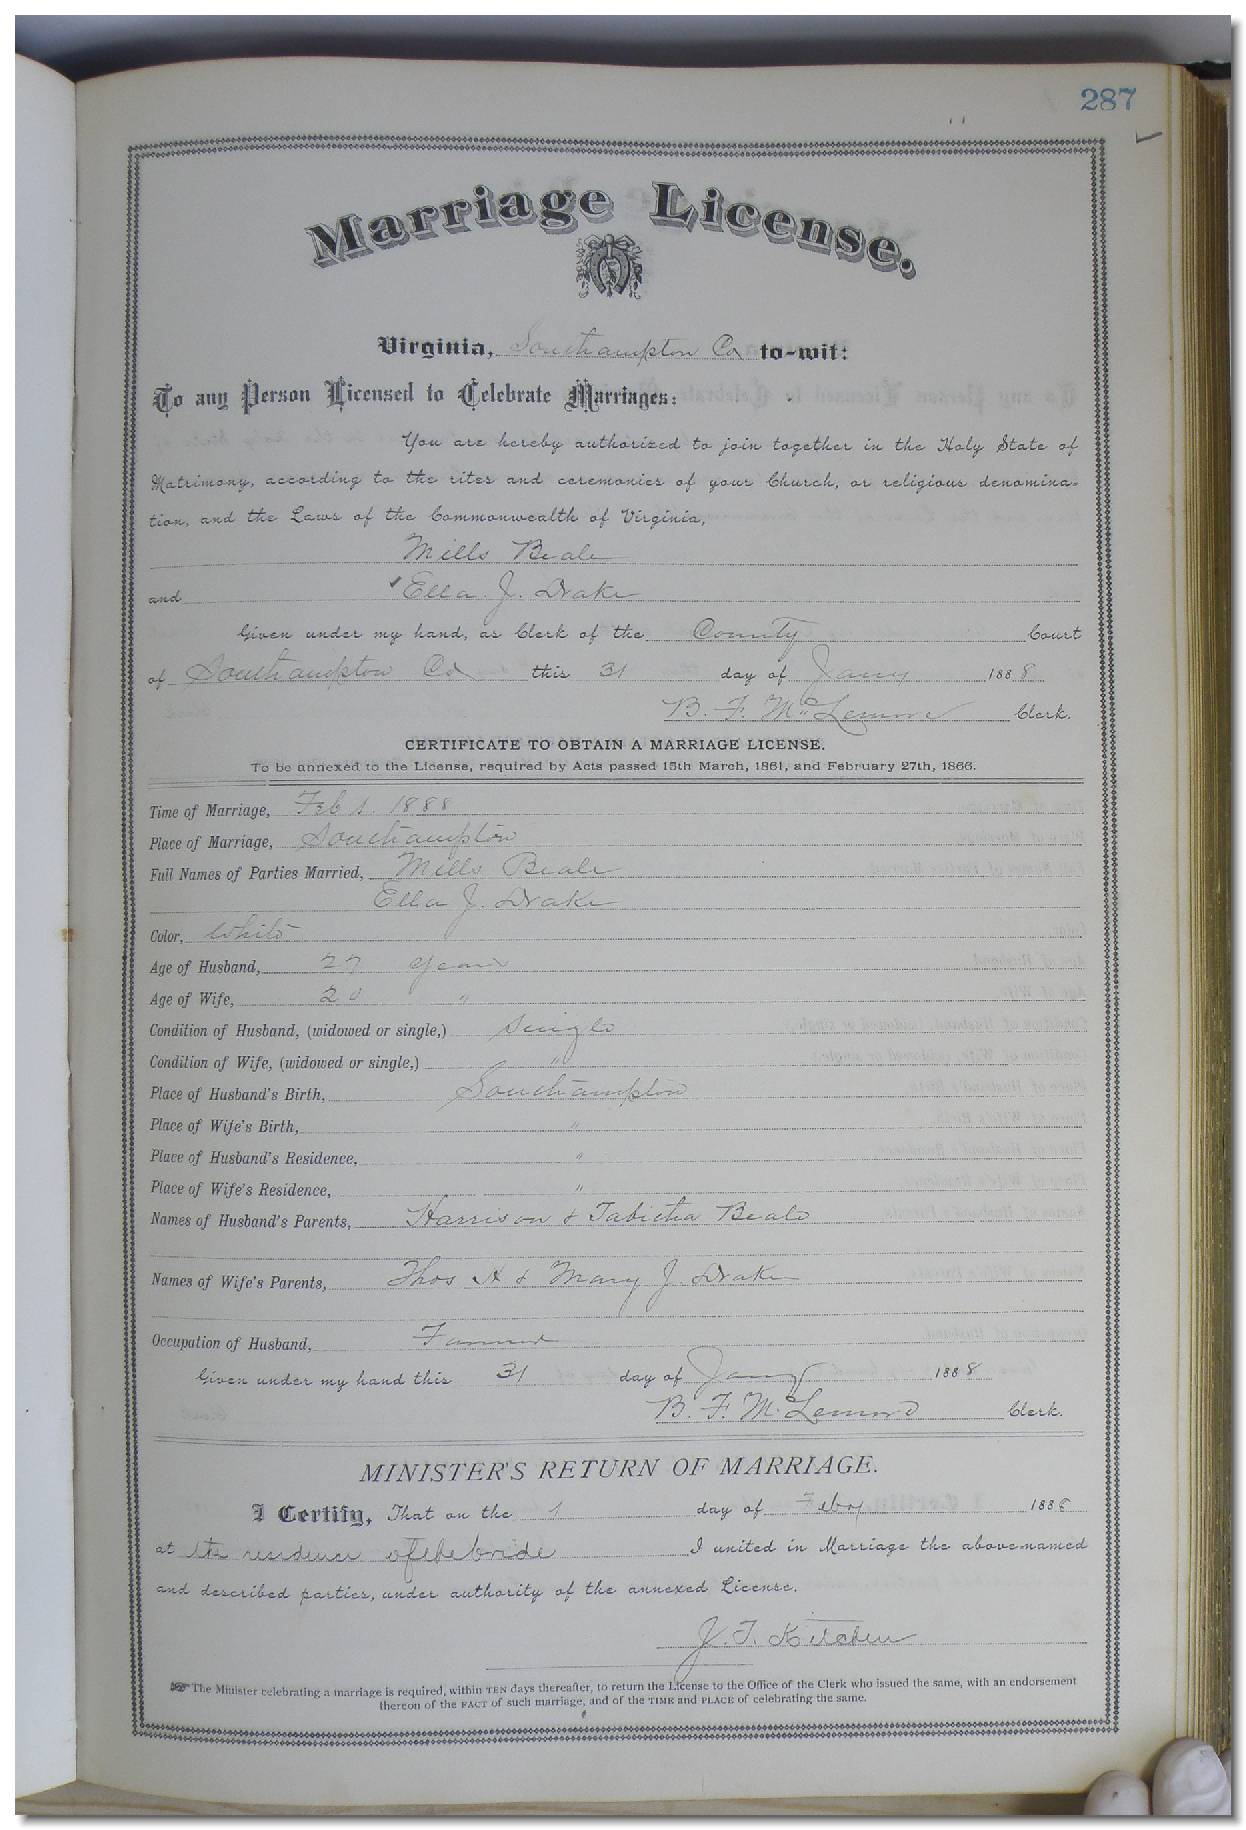 287
Marriage License.
Virginia, Southampton Co to-wit:
To any Person Licensed to Celebrate Marriages:
You are hereby authorized to join together in the Holy State of
Matrimony, according to the rites and ceremonies of your Church, or religious denomina-
tion, and the Laws of the Commonwealth of Virginia,
Mills Beale
and Ella J. Drake
Given under my hand, as Clerk of the County Court
of Southampton Co this 31 day of Jany 1888
B. F. McLemore Clerk.
CERTIFICATE TO OBTAIN A MARRIAGE LICENSE.
To be annexed to the License, required by Acts passed 15th March, 1861, and February 27th, 1866.
Time of Marriage, Feb 1. 1888
Place of Marriage, Southampton
Full Names of Parties Married, Mills Beale
Ella J. Drake
Color, White
Age of Husband, 27 years
Age of Wife, 20 "
Condition of Husband, (widowed or single,) Single
Condition of Wife, (widowed or single,) "
Place of Husband's Birth, Southampton
Place of Wife's Birth, "
Place of Husband's Residence, "
Place of Wife's Residence, "
Names of Husband's Parents, Harrison & Tabitha Beale
Names of Wife's Parents, Thos A & Mary J Drake
Occupation of Husband, Farmer
Given under my hand this 31 day of Jany 1888
B. F. McLemore Clerk.
MINISTER'S RETURN OF MARRIAGE.
I Certify, That on the 1 day of Feby 1888
at the residence of the bride I united in Marriage the above-named
and described parties, under authority of the annexed License.
J. T. Kitchen
The Minister celebrating a marriage is required, within TEN days thereafter, to return the License to the Office of the Clerk who issued the same, with an endorsement
thereon of the FACT of such marriage, and of the TIME and PLACE of celebrating the same.